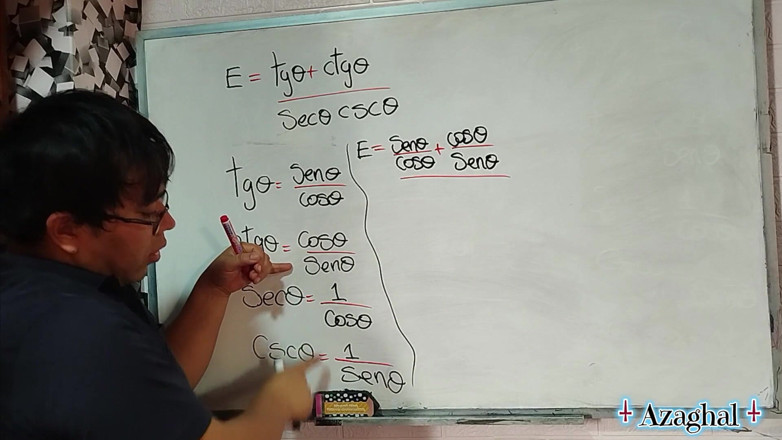 E = tgθ + ctgθ
secθ cscθ
tgθ = senθ
cosθ
tgθ = cosθ
senθ
secθ = 1
cosθ
cscθ = 1
senθ
E = senθ + cosθ
cosθ senθ
Azaghal